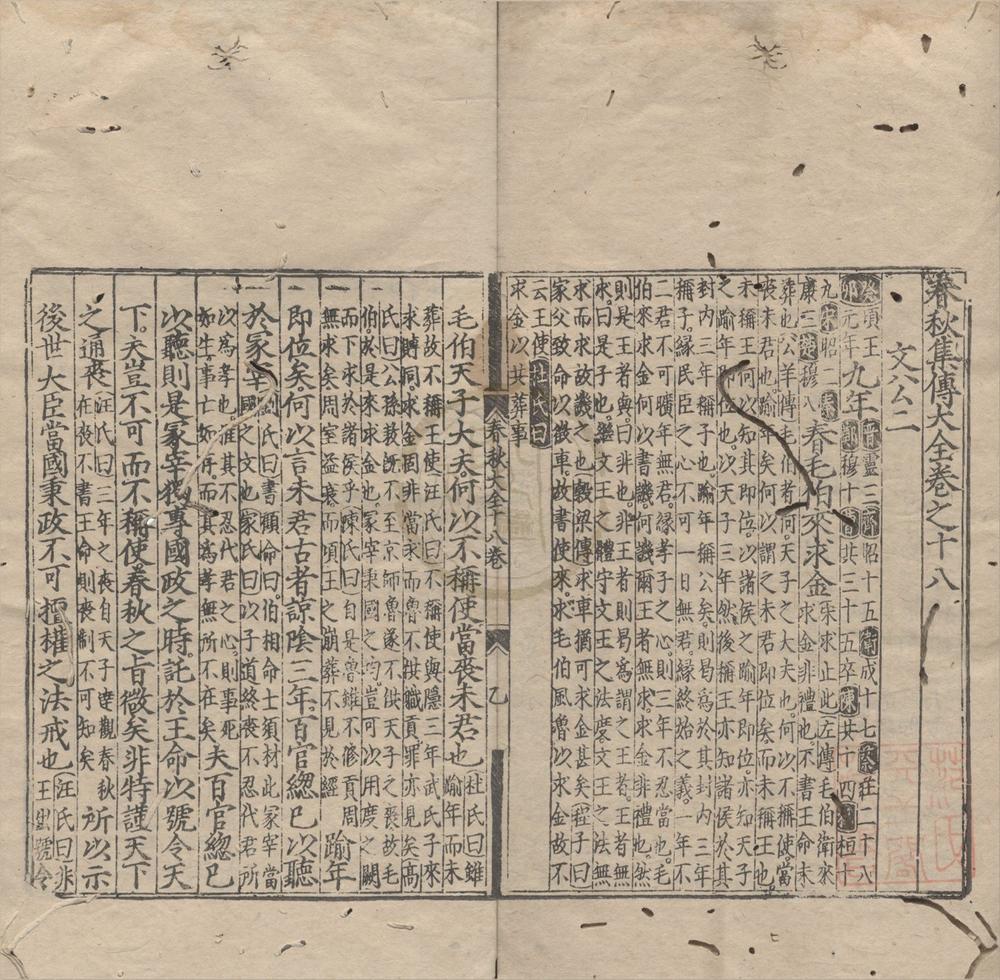 春秋集傳大全卷之十八
文公二
癸卯頃王元年九年晉靈三齊昭十五衛成十七蔡莊二十八
鄭穆十曹共三十五卒陳共十四杞桓十
九宋昭二秦康三楚穆八春毛伯來求金
求金非禮也不書王命未
葬也公羊傳毛伯者何天子之大夫也何以不稱使當
喪未君也踰年矣何以謂之未君即位矣而未稱王也
未稱王何以知其即位以諸侯之踰年即位亦知天子
之踰年即位也以天子三年然後稱王亦知諸侯於其
封內三年稱子也踰年稱公矣則曷為於其封內三年
稱子緣民臣之心不可一日無君緣終始之義一年不
二君不可曠年無君緣孝子之心則三年不忍當也毛
伯來求金何以書譏何譏爾王者無求求金非禮也然
則是王者與曰非也非王者則曷為謂之王者王者無
求曰是子也繼文王之體守文王之法度文王之法無
求而求故譏之也穀梁傳求車猶可求金甚矣程子曰
家父致命以徵車故書使來求毛伯風魯以求金故不
云王使杜氏曰
求金以共葬事
春秋大全十八卷
毛伯天子大夫何以不稱使當喪未君也杜氏曰雖踰年而未
葬故不稱王使汪氏曰不稱使與隱三年武氏子來
求賻同求金固非當求而魯不供職貢罪亦見矣高
氏曰公孫敖旣不至京師魯遂不供天子之喪故毛
伯於是來求金也冢宰秉國之均豈可以用度之闕
而下求於諸侯乎陳氏曰自是魯雖不修貢周
無求矣周室益衰而頃王之崩葬不見於經踰年
即位矣何以言未君古者諒陰三年百官緫己以聽
於冢宰劉氏曰書顧命曰伯相命士須材此冢宰當
國之文也家氏曰以子道終喪不忍代君所
以為孝也推其不忍代君之心則事死
如生事亡如存而其為孝無所不在矣夫百官緫己
以聽則是冢宰獨專國政之時託於王命以號令天
下夫豈不可而不稱使春秋之旨微矣非特謹天下
之通喪汪氏曰三年之喪自天子達觀春秋
在喪不書王命則喪制不可知矣所以示
後世大臣當國秉政不可擅權之法戒也汪氏曰非王命號令